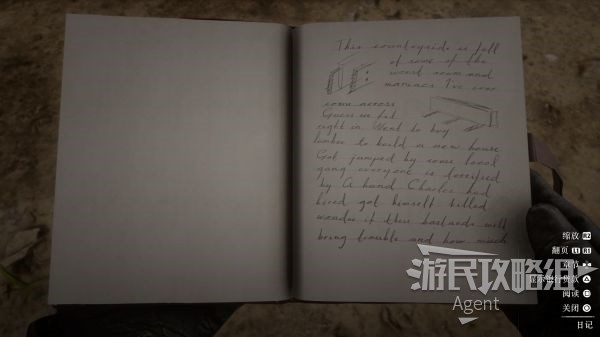 This countryside is full
of some of the
worst scum and
maniacs I've ever
come across
Guess we fit
right in. Went to buy
lumber to build a new house
Got jumped by some local
gang everyone is terrified
by A hand Charles had
hired got himself killed
wonder if these bastards will
bring trouble and how much
缩放 R2
翻页 L1 R1
阅读
关闭
日记
游民攻略组
Agent